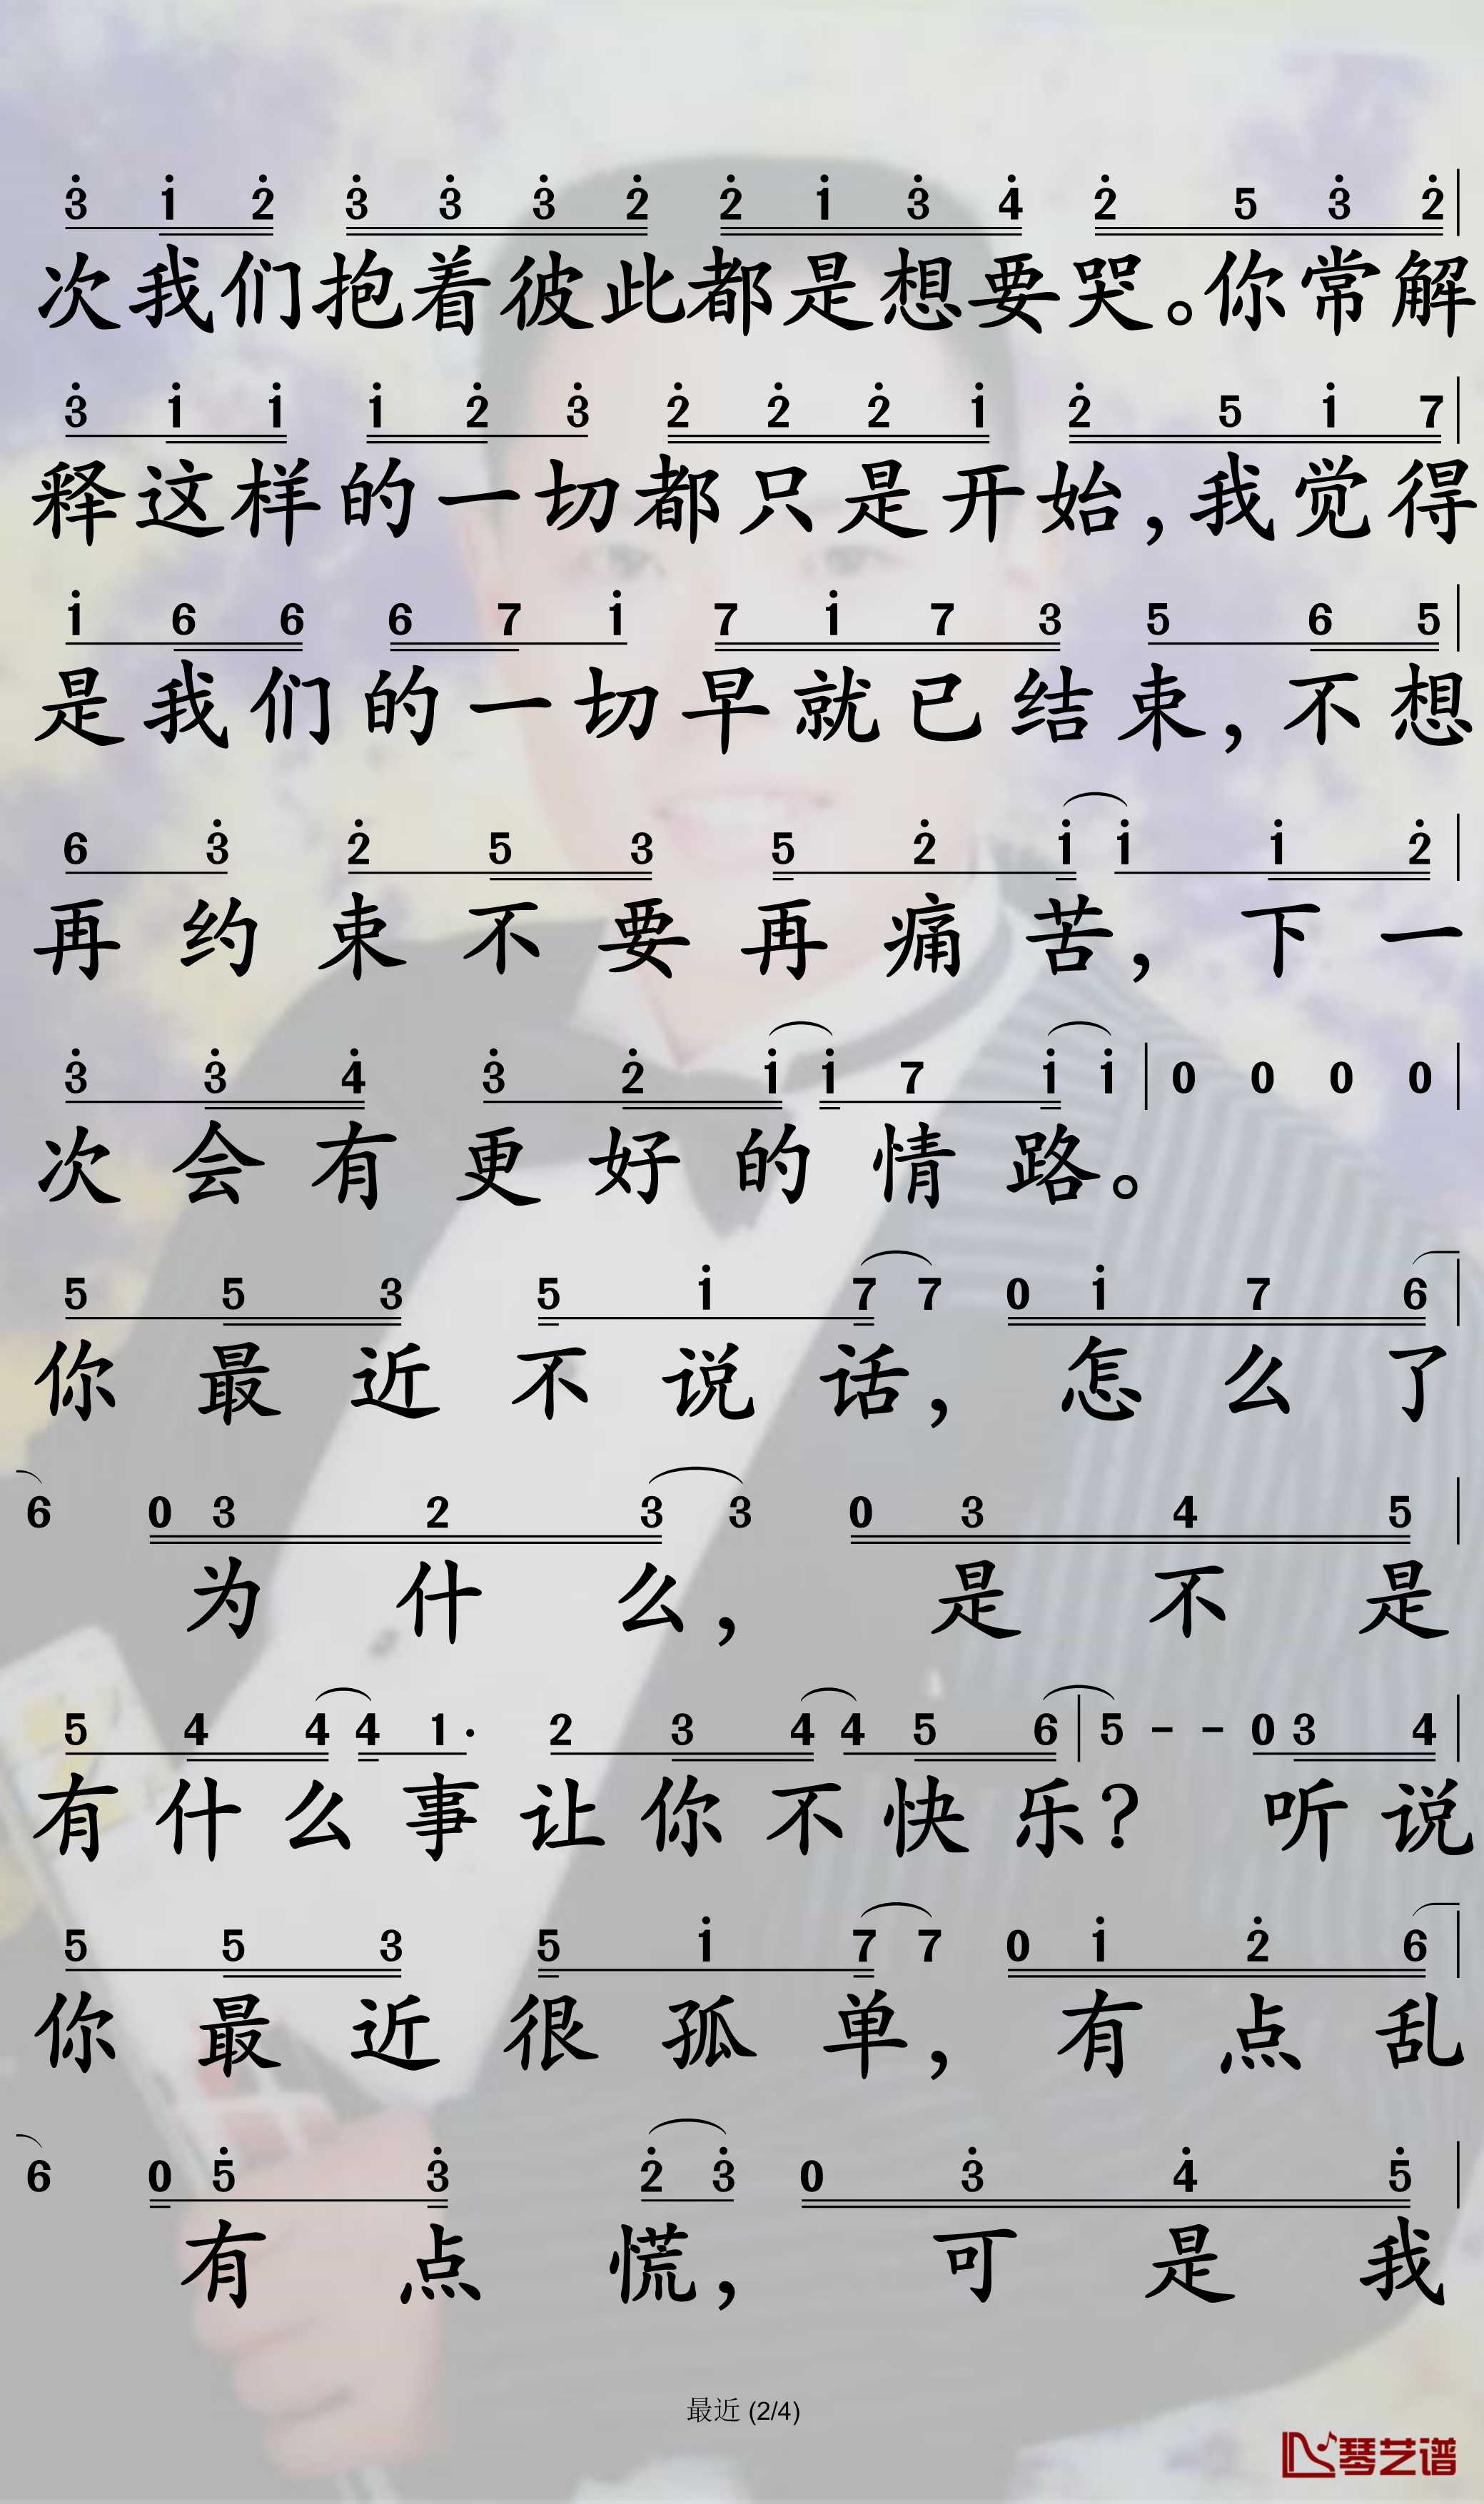 3̇ 1̇ 2̇ 3̇ 3̇ 3̇ 2̇ 2̇ 1̇ 3̇ 4̇ 2̇ 5 3̇ 2̇ |
次我们抱着彼此都是想要哭。你常解
3̇ 1̇ 1̇ 1̇ 2̇ 3̇ 2̇ 2̇ 2̇ 1̇ 2̇ 5 1̇ 7 |
释这样的一切都只是开始,我觉得
1̇ 6 6 6 7 1̇ 7 1̇ 7 3 5 6 5 |
是我们的一切早就已结束,不想
6 3̇ 2̇ 5 3 5 2̇ 1̇ 1̇ 1̇ 2̇ |
再约束不要再痛苦,下一
3̇ 3̇ 4̇ 3̇ 2̇ 1̇ 1̇ 7 1̇ 1̇ | 0 0 0 0 |
次会有更好的情路。
5 5 3 5 1̇ 7 7 0 1̇ 7 6 |
你最近不说话,怎么了
6 0 3 2 3 3 0 3 4 5 |
为什么,是不是
5 4 4 4 1· 2 3 4 4 5 6 | 5 - - 0 3 4 |
有什么事让你不快乐?听说
5 5 3 5 1̇ 7 7 0 1̇ 2̇ 6 |
你最近很孤单,有点乱
6 0 5̇ 3̇ 2̇ 3̇ 0 3̇ 4̇ 5̇ |
有点慌,可是我
最近 (2/4)
琴艺谱